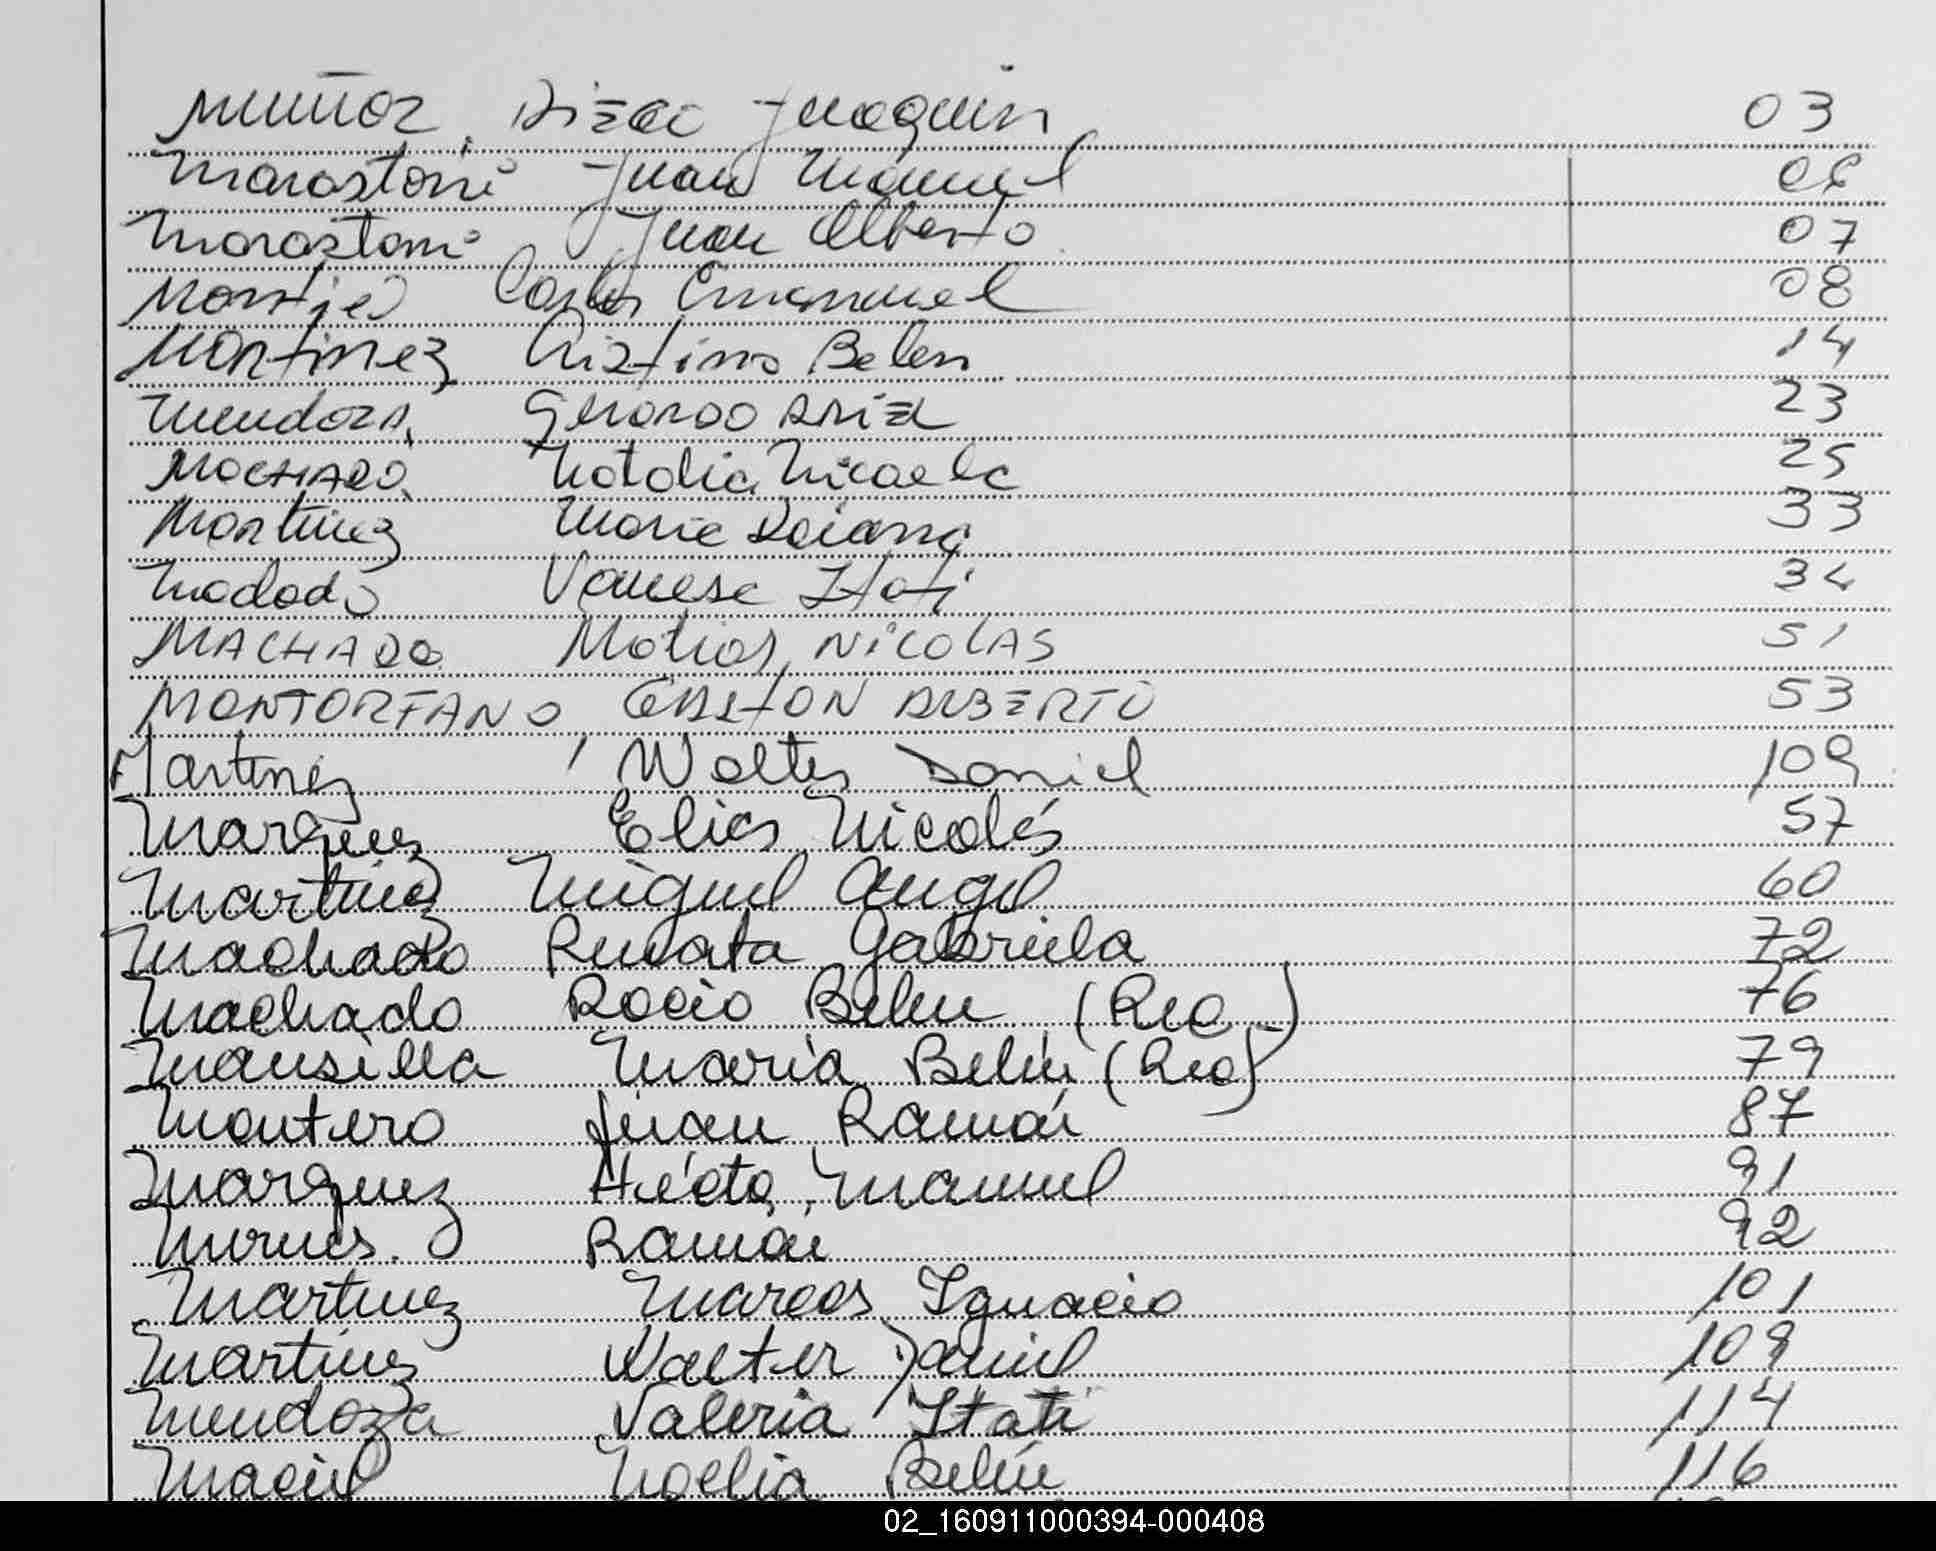 Muñoz, Diego Joaquin 03
Marastoni Juan Manuel 06
Marastoni Juan Alberto 07
Montiel Carlos Emanuel 08
Martinez Cristina Belen 14
Mendoza, Gerardo Ariel 23
MACHADO, Natalia Micaela 25
Martinez Maria Daiana 33
Vanesa Itati 34
MACHADO Matias NICOLAS 51
MONTORFANO GASTON ALBERTO 53
Martinez Walter Daniel 109
Marquez Elias Nicolás 57
Martinez Miguel Angel 60
Machado Renata Gabriela 72
Machado Rocio Belen (Rec.) 76
Mansilla Maria Belén (Rec) 79
Montero Juan Ramón 87
Marquez Héctor Manuel 91
Ramón 92
Martinez Marcos Ignacio 101
Martinez Walter Daniel 109
Mendoza Valeria Itati 114
Maciel Noelia Belén 116
02_160911000394-000408